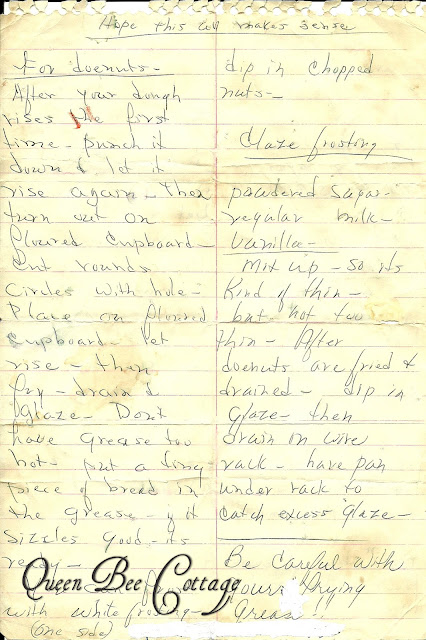 Hope this all makes sense
For doenuts-
After your dough
rises the first
time - punch it
down & let it
rise again - then
turn out on
floured cupboard-
Cut rounds
Circles with hole-
Place on floured
cupboard - let
rise - then
fry - drain &
glaze - Dont
have grease too
hot - put a tiny
piece of bread in
the grease - if it
sizzles good - its
ready -
with white frosting -
(one side)
dip in chopped
nuts -
Glaze frosting
powdered sugar -
regular milk -
vanilla -
Mix up - so its
Kind of thin -
but not too
thin - After
doenuts are fried &
drained - dip in
glaze - then
drain on wire
rack - have pan
under rack to
catch excess glaze -
Be careful with
your frying
Grease!!
Queen Bee Cottage